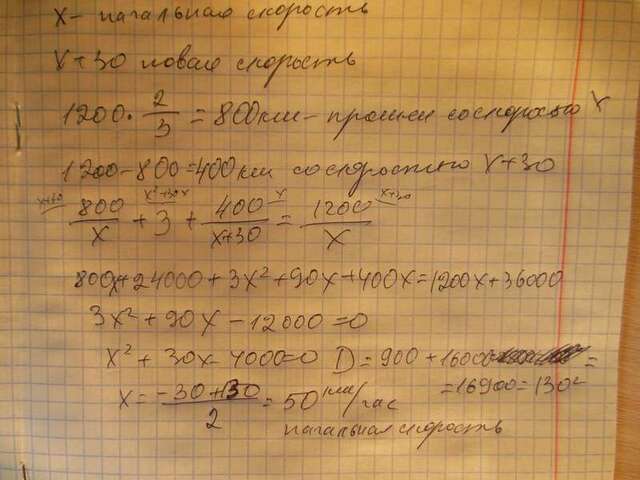 x - начальная скорость
x+30 новая скорость
1200 · 2/3 = 800 км - прошел со скоростью x
1200 - 800 = 400 км со скоростью x+30
x+30 x²+30x x x+30
800/x + 3 + 400/(x+30) = 1200/x
800x+24000+3x²+90x+400x=1200x+36000
3x²+90x-12000=0
x²+30x-4000=0 D=900+16000=
=16900=130²
x=(-30+130)/2=50 км/час
начальная скорость